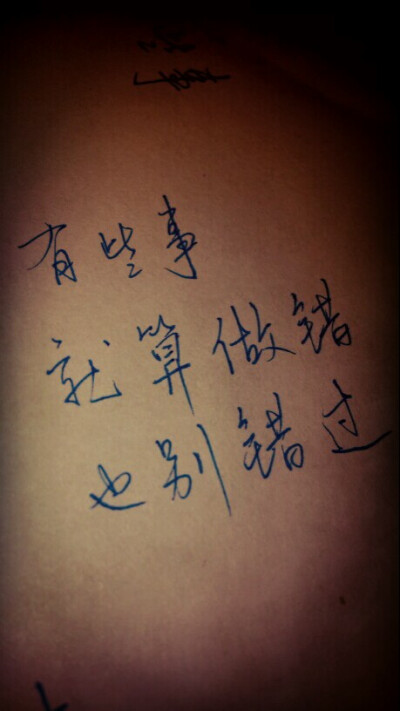 有些事
就算做错
也别错过